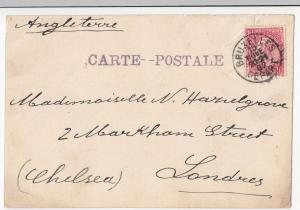 Angleterre
CARTE--POSTALE
BRUXELLES
DEPART
Mademoiselle N. Hazelgrove
2 Markham Street
(Chelsea) Londres